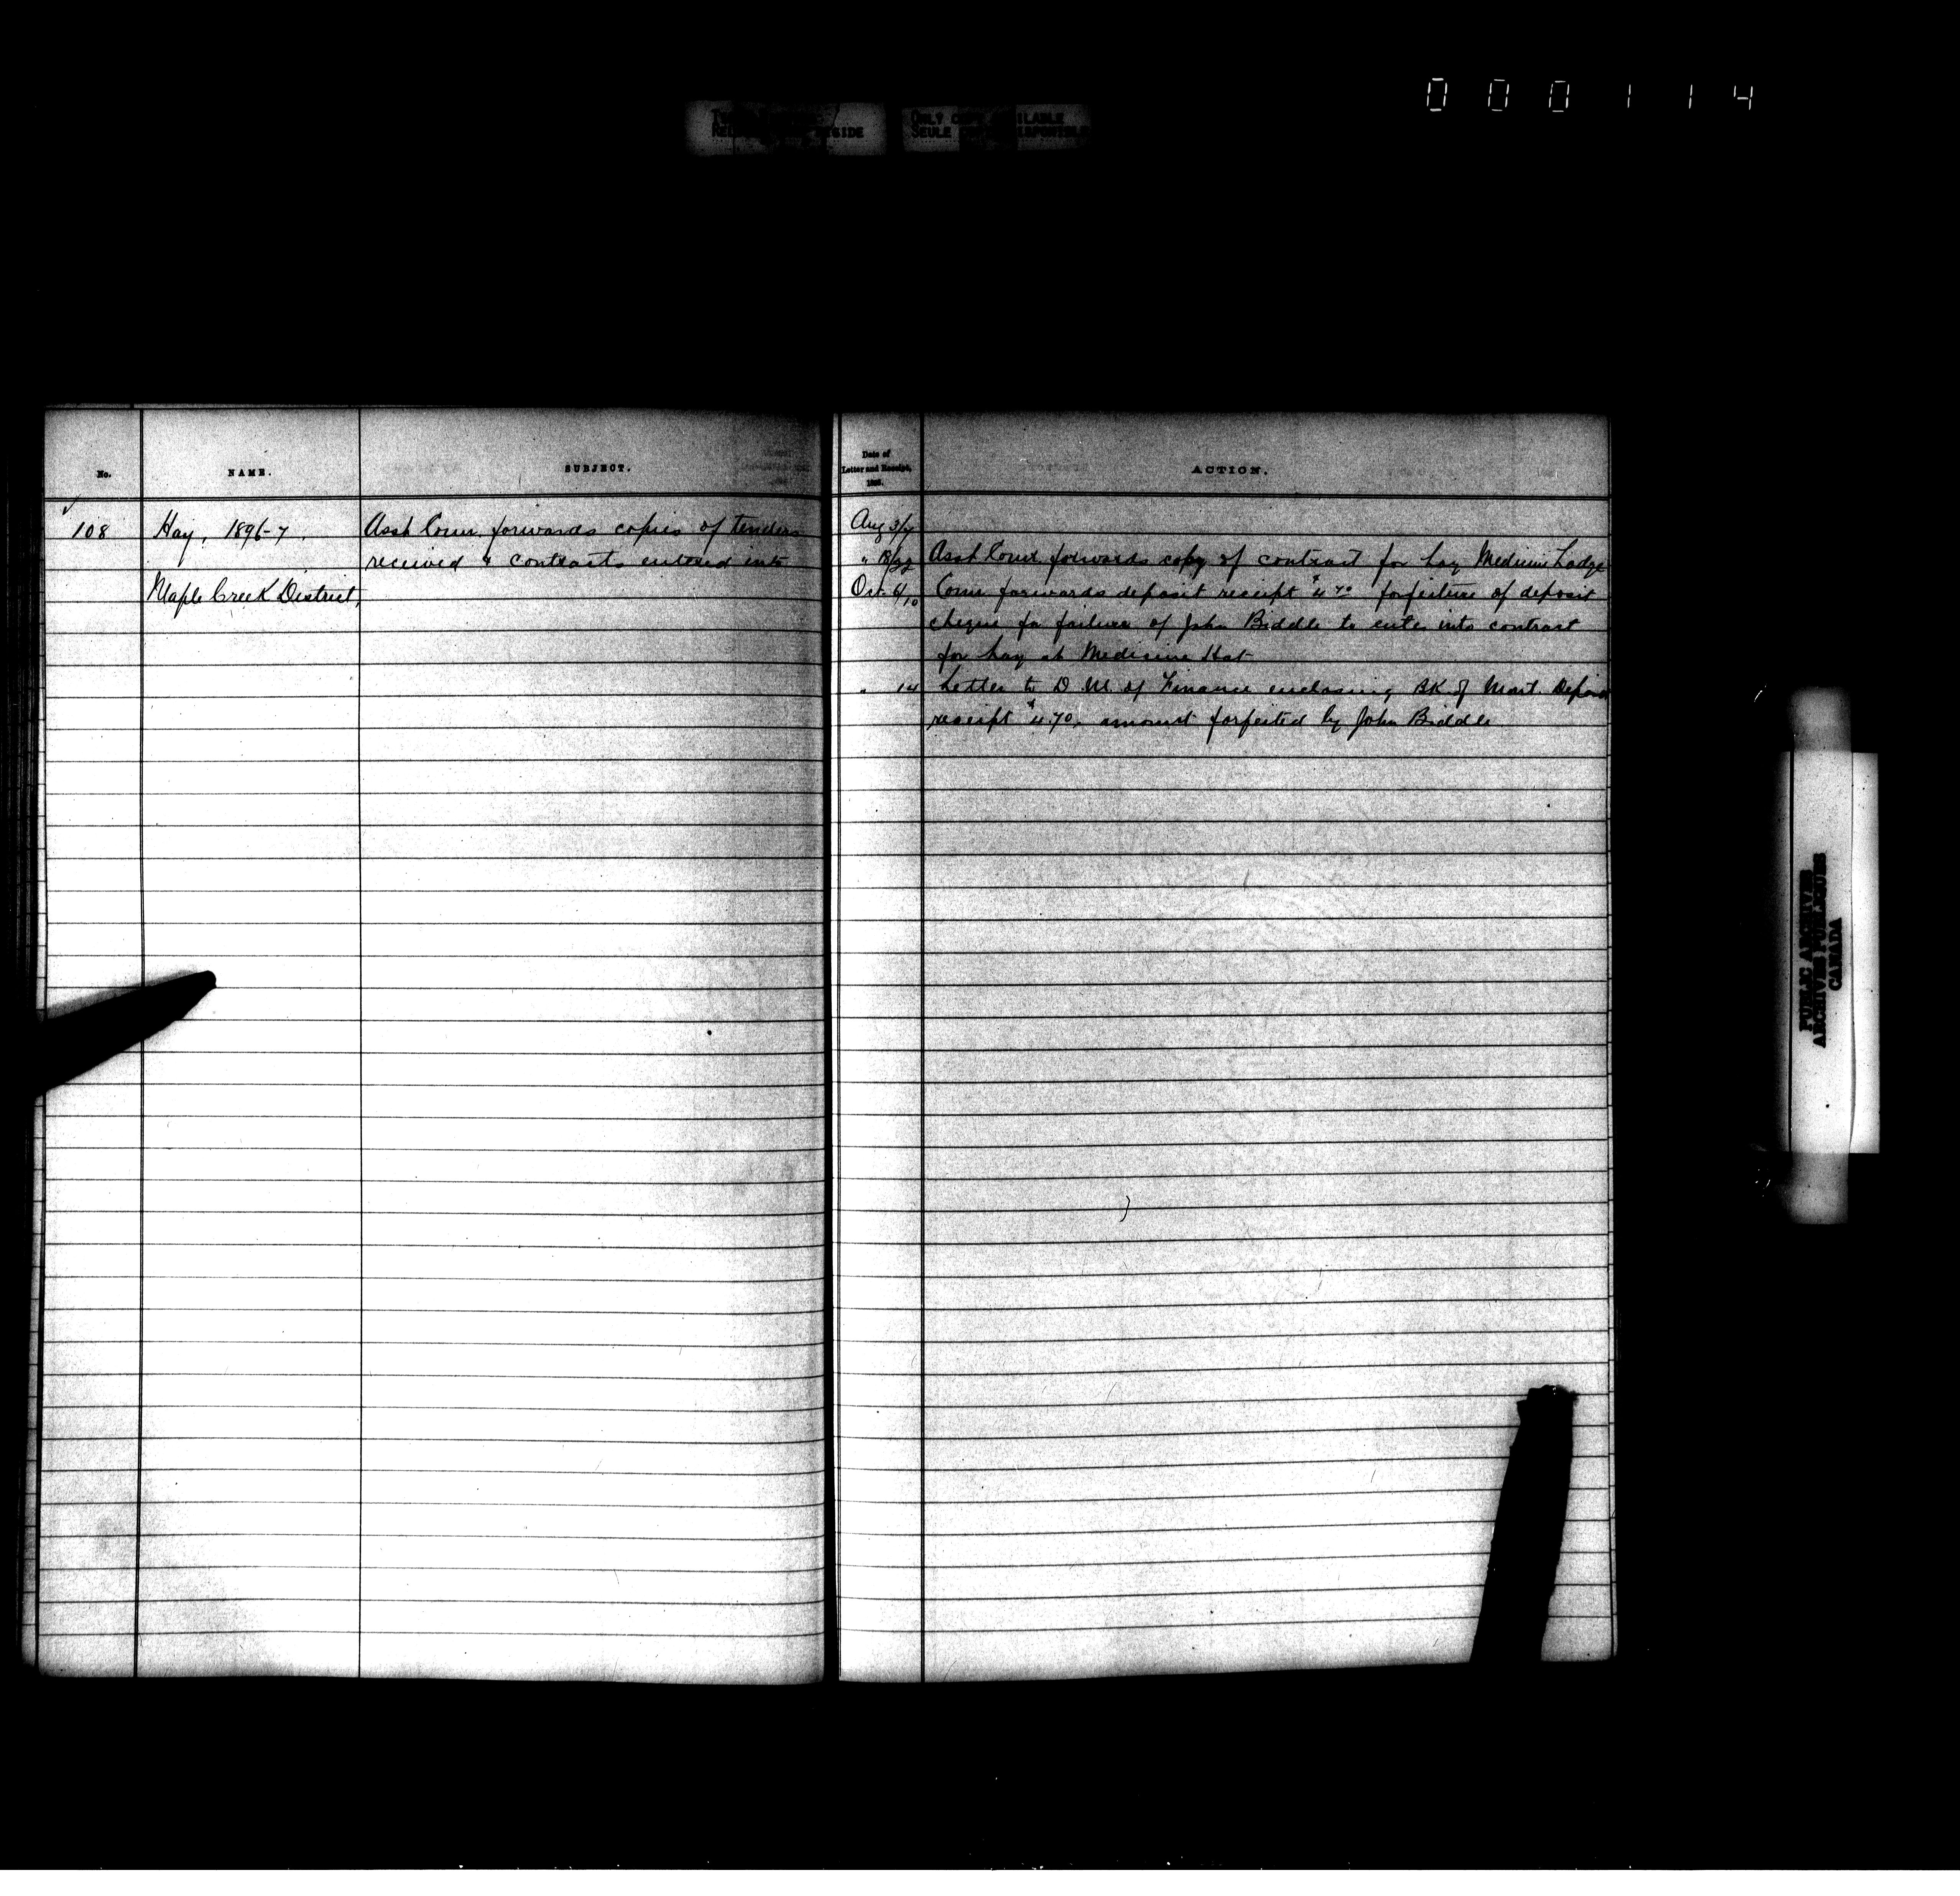 0 0 0 1 1 4
ONLY COPY AVAILABLE
SEULE COPIE DISPONIBLE
No.
NAME.
SUBJECT.
Date of
Letter and Receipt,
ACTION.
108
Hay, 1896-7.
Maple Creek District,
Asst Comr. forwards copies of tenders
received & contracts entered into
Aug 3/7
Asst Comr forwards copy of contract for hay Medicine Lodge
Oct 6/10 Comr forwards deposit receipt $4.70 forfeiture of deposit
cheque for failure of John Biddle to enter into contract
for hay at Medicine Hat
" 14 Letter to D. M. of Finance enclosing BK of Mont. Deposit
receipt $4.70. amount forfeited by John Biddle
PUBLIC ARCHIVES
ARCHIVES PUBLIQUES
CANADA